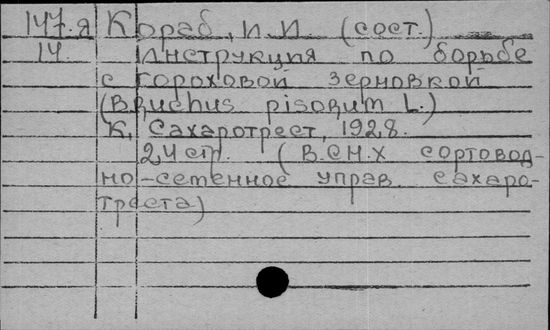 147.я Кораб, И.И (сост.)
14 Инструкция по борьбе
с гороховой зерновкой
(Bruchus pisorum L.)
К, Сахаротрест, 1928.
24 стр. (В.С.Н.Х сортовод-
но-сетенное управ. сахаро-
треста)